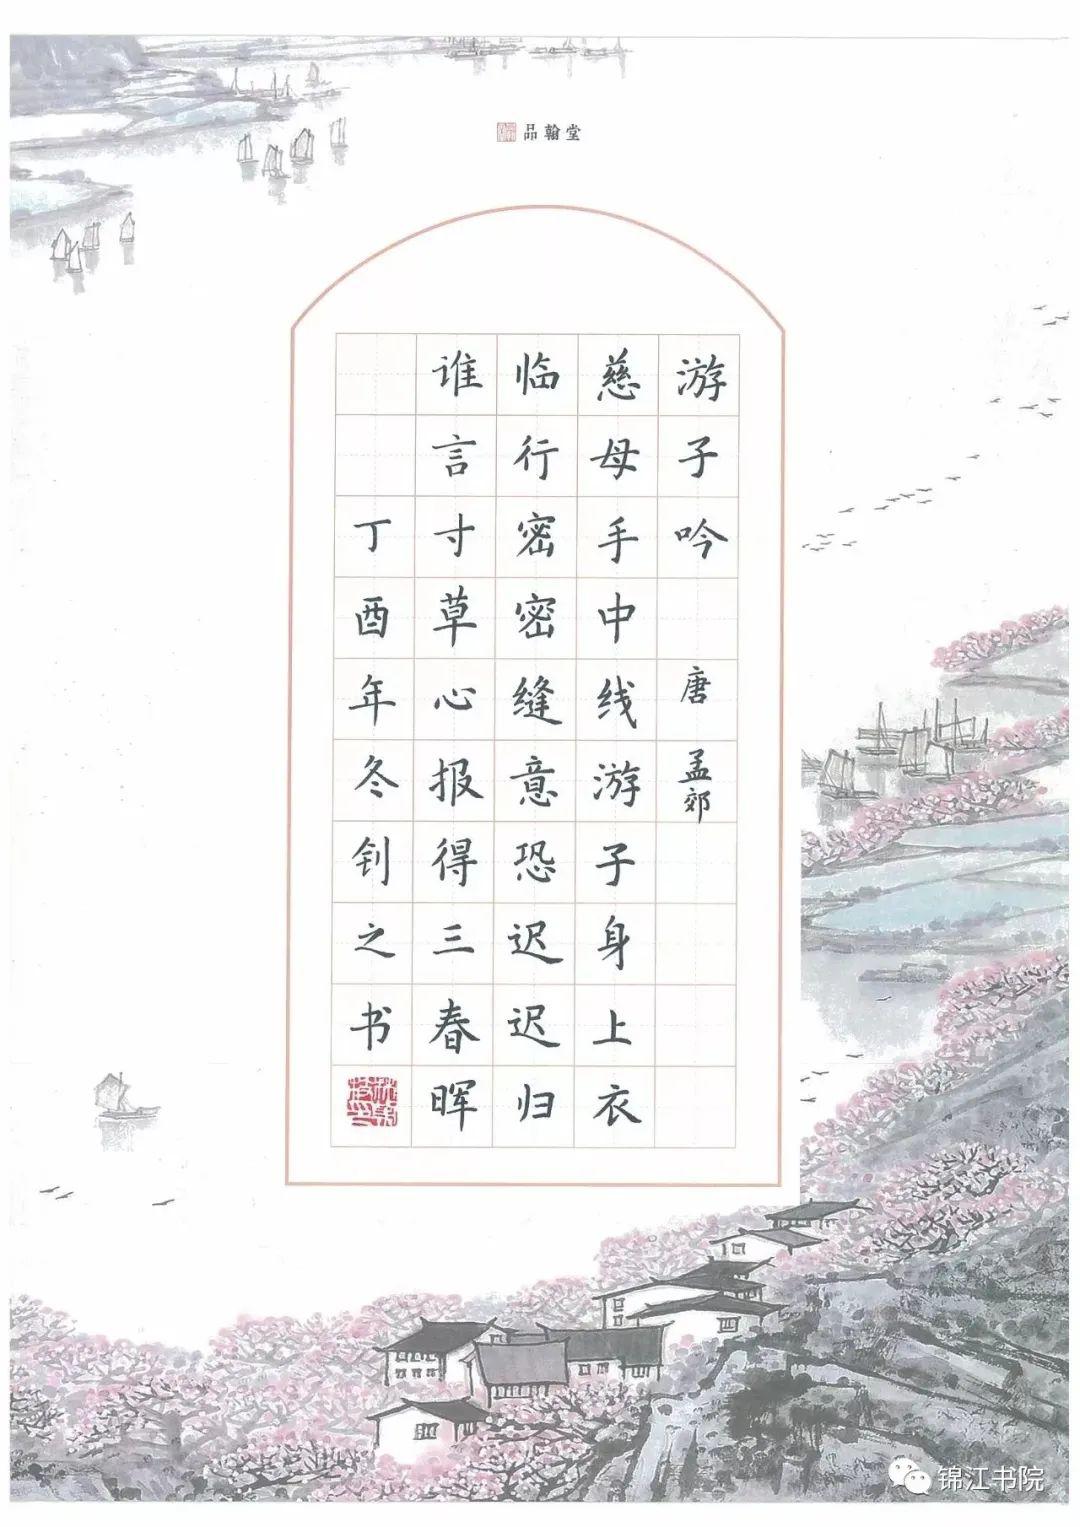 品翰堂
游子吟 唐 孟郊
慈母手中线游子身上衣
临行密密缝意恐迟迟归
谁言寸草心报得三春晖
丁酉年冬钊之书
锦江书院